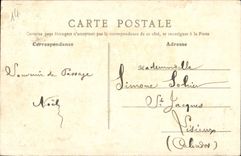 14
CARTE POSTALE
Tous les pays étrangers n'acceptent pas la correspondance de ce côté, se renseigner à la Poste
Correspondance
Adresse
Souvenir de Passage
Noël
Mademoiselle
Simone
St Jacques
Lisieux
(Calvados)